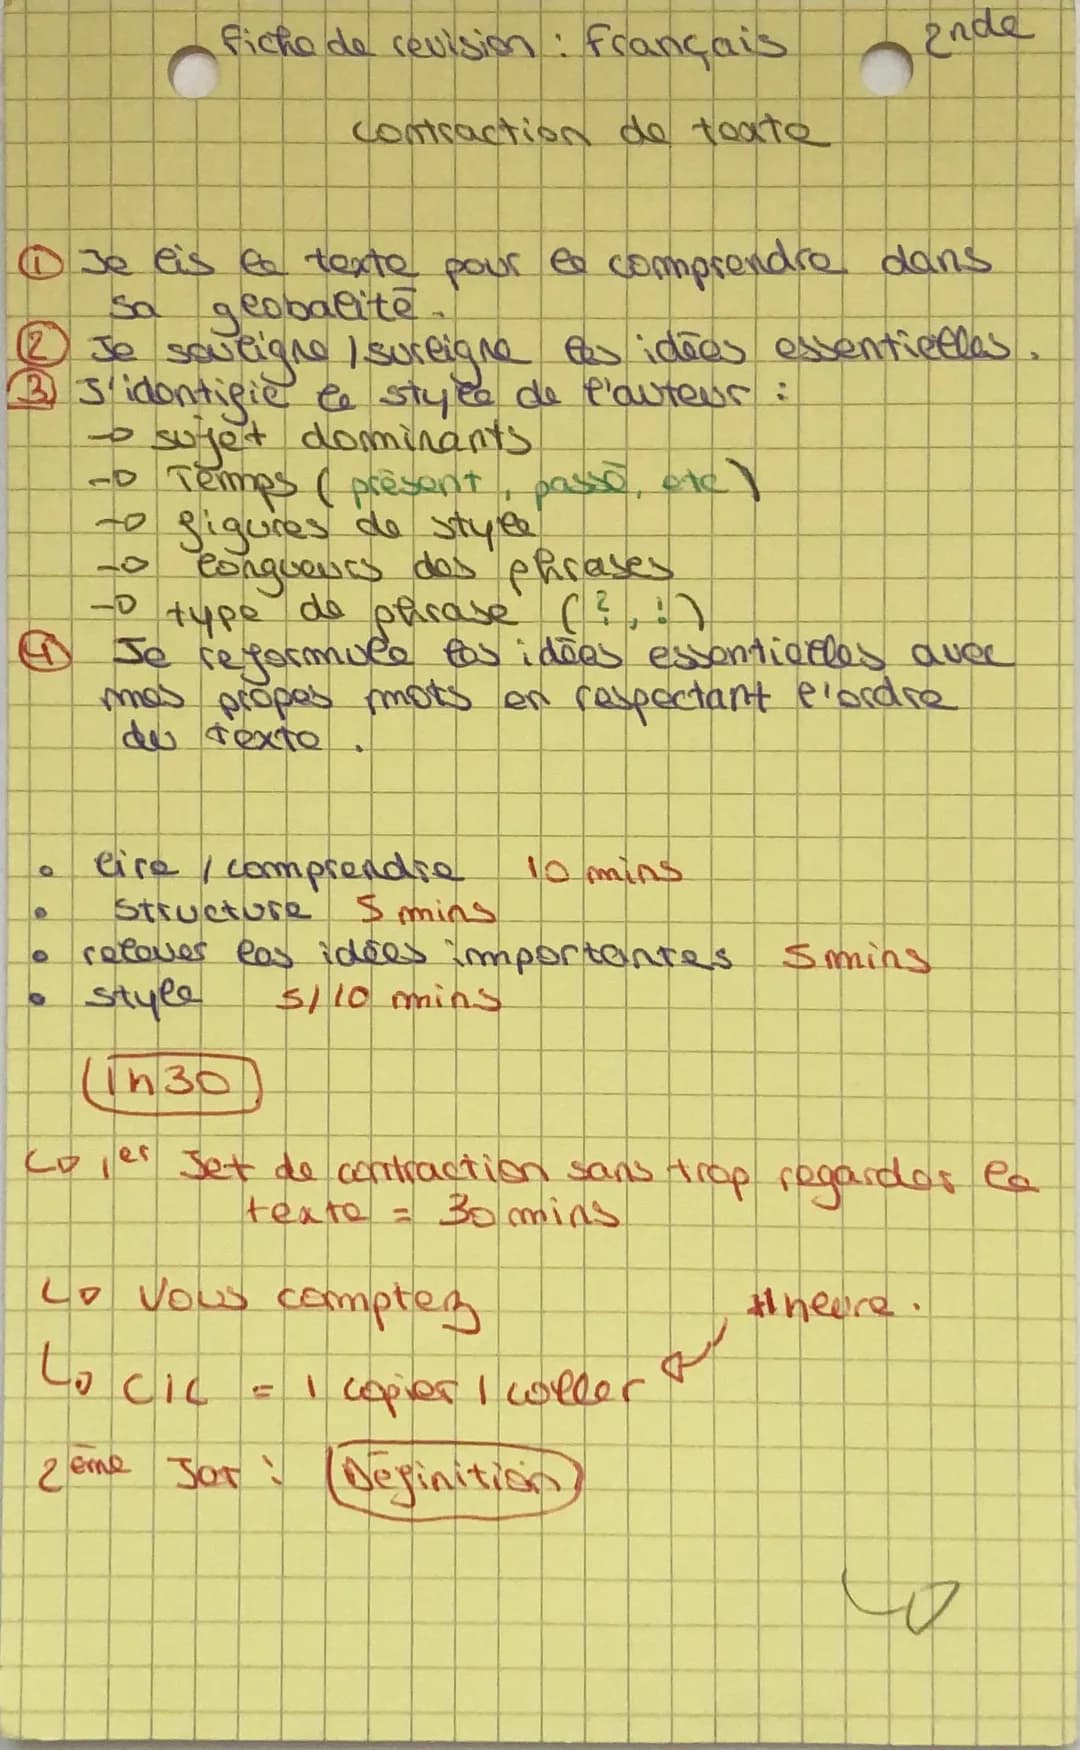 Fiche de revision : Français 2nde
contraction de texte
① Je lis le texte pour le comprendre dans
sa globalité.
② Je souligne / sureligne les idées essentielles.
③ J'identifie le style de l'auteur :
→ sujet dominants
→ Temps (présent, passé, etc)
→ figures de style
→ longueurs des phrases
→ type de phrase (?, !)
④ Je reformule les idées essentielles avec
mes propes mots en respectant l'ordre
du texte.
• lire / comprendre 10 mins
• structure 5 mins
• relever les idées importantes 5 mins
• style 5/10 mins
1h30
↳ 1er Jet de contraction sans trop regarder le
texte = 30 mins
↳ Vous comptez
heure.
↳ C/C = 1 copier / coller
2ème Jet : Définition